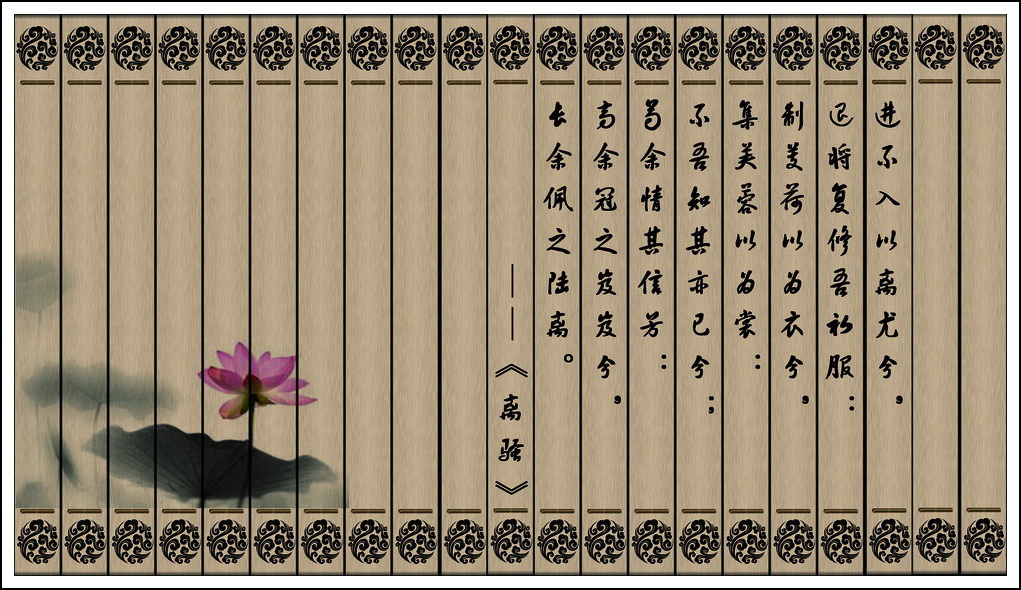 进不入以离尤兮，
退将复修吾初服：
制芰荷以为衣兮，
集芙蓉以为裳：
不吾知其亦已兮；
苟余情其信芳：
高余冠之岌岌兮，
长余佩之陆离。
——《离骚》